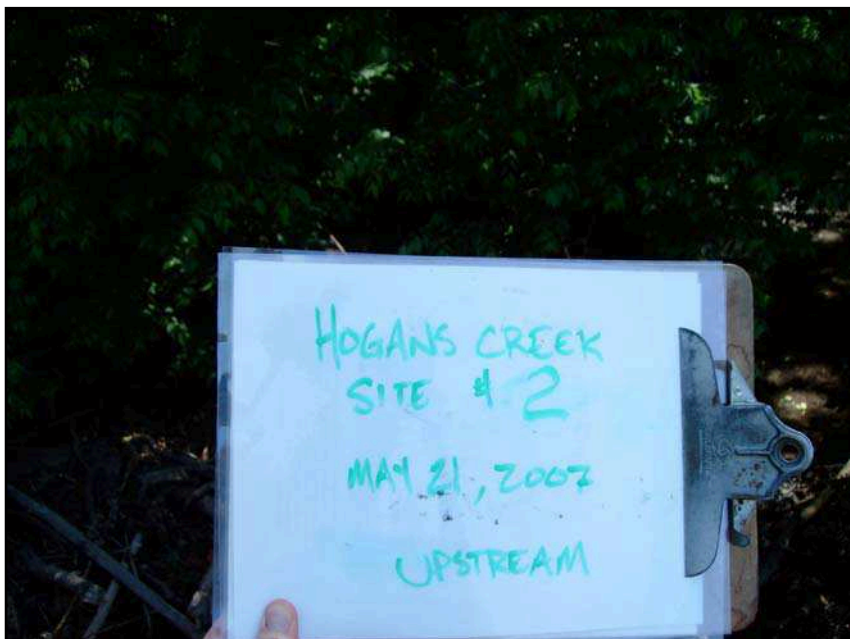 HOGANS CREEK
SITE # 2
MAY 21, 2007
UPSTREAM